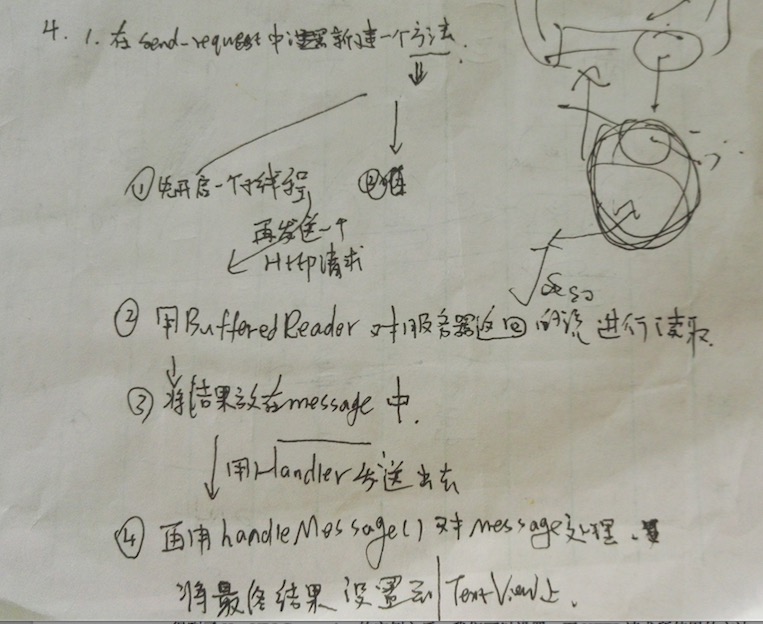 4. 1. 在 send-request中新建一个方法.
①先开启一个子线程
②
再发送一个
Http请求
② 用BufferedReader 对服务器返回的流进行读取.
③ 将结果放在message 中.
用Handler发送出去
④ 再用handleMessage()对message处理,
将最终结果 设置到TextView上.